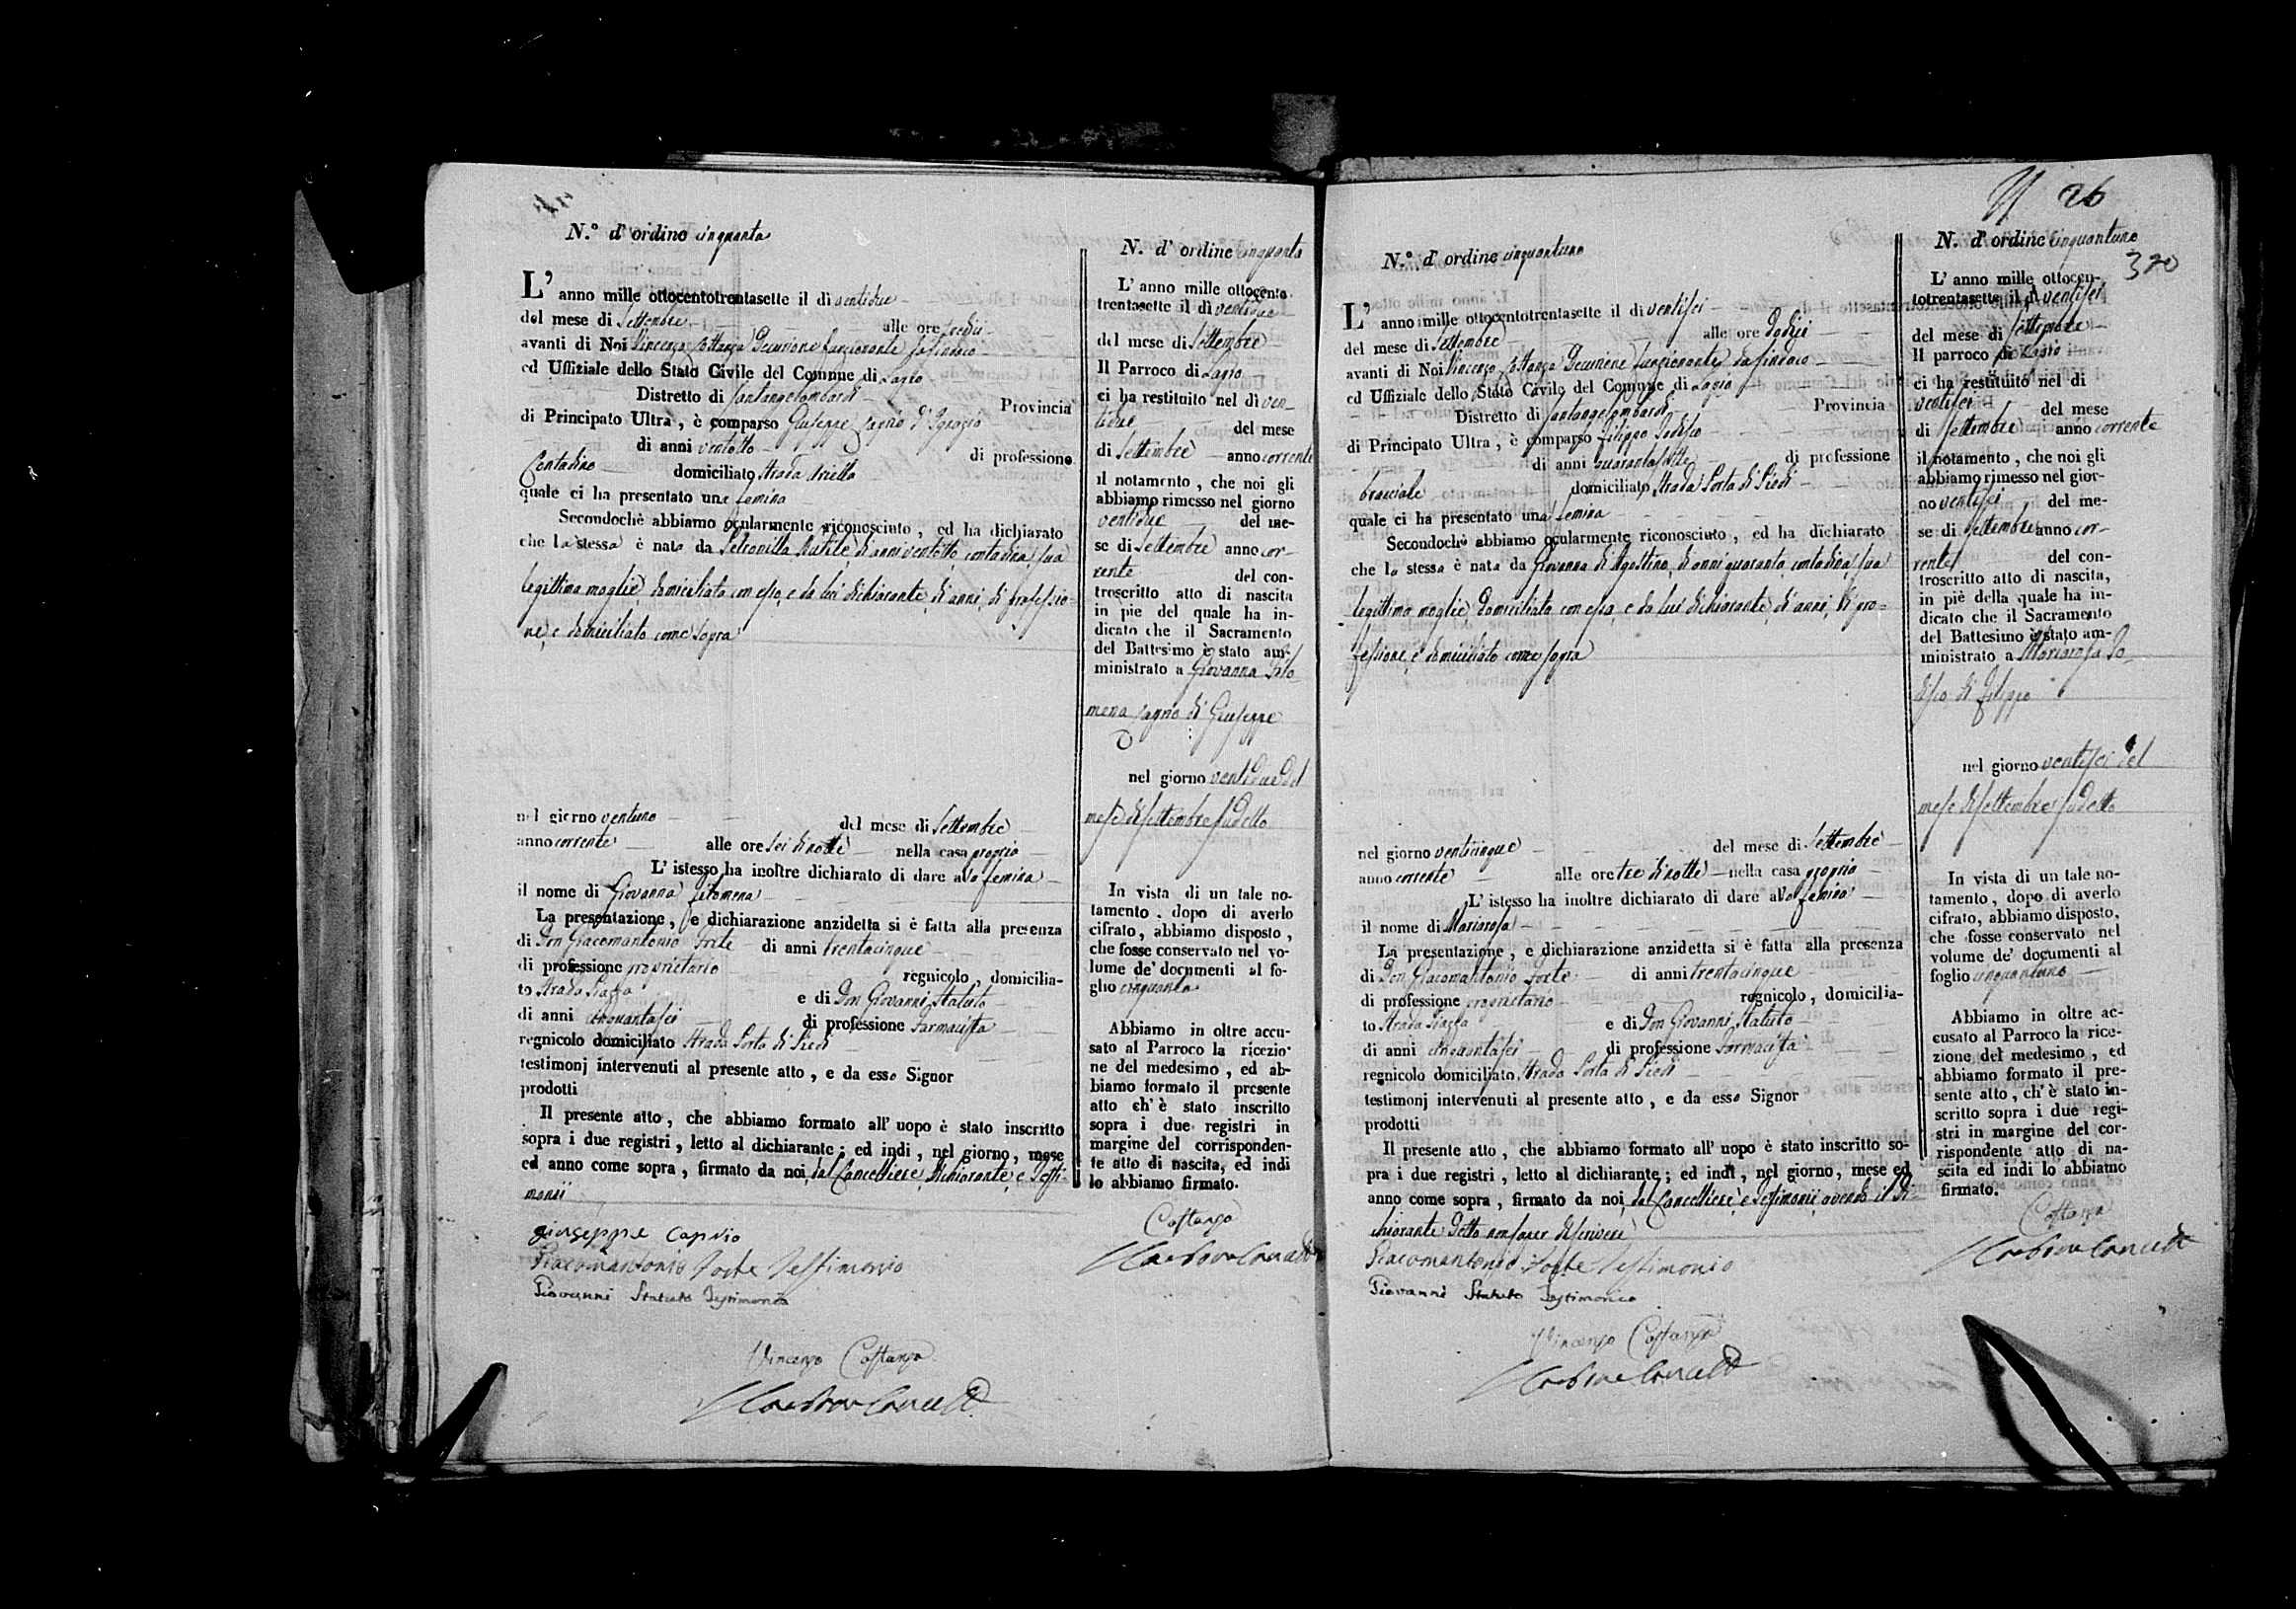 N.º d' ordine cinquanta
L' anno mille ottocentotrentasette il dì ventidue
del mese di Settembre alle ore
avanti di Noi Vincenzo Costanza Decurione funzionante da Sindaco
ed Uffiziale dello Stato Civile del Comune di
Distretto di Santangelombardi Provincia
di Principato Ultra, è comparso Giuseppe d'Ignazio
di anni ventotto di professione
Contadino domiciliato Strada
quale ci ha presentato una femina
Secondochè abbiamo ocularmente riconosciuto, ed ha dichiarato
che la stessa è nata da Petronilla di anni ventotto, contadina, sua
legittima moglie, domiciliata con esso, e da lui dichiarante, di anni, di professio=
ne, e domiciliato come sopra
nel giorno ventuno del mese di Settembre
anno corrente alle ore sei di notte nella casa propria
L' istesso ha inoltre dichiarato di dare alla femina
il nome di Giovanna Filomena
La presentazione, e dichiarazione anzidetta si è fatta alla presenza
di Don Giacomantonio Forte di anni trentacinque
di professione proprietario regnicolo, domicilia-
to Strada Piazza e di Don Giovanni Statuto
di anni cinquantasei di professione Farmacista
regnicolo domiciliato Strada Porta di Piedi
testimonj intervenuti al presente atto, e da esso Signor
prodotti
Il presente atto, che abbiamo formato all' uopo è stato inscritto
sopra i due registri, letto al dichiarante; ed indi, nel giorno, mese
ed anno come sopra, firmato da noi, dal Cancelliere, dichiarante, e Testi-
monii
Giuseppe
Giacomantonio Forte Testimonio
Giovanni Statuto Testimonio
Vincenzo Costanza
N. d' ordine cinquanta
L' anno mille ottocento
trentasette il dì ventidue
del mese di Settembre
Il Parroco di
ci ha restituito nel dì ven-
tidue del mese
di Settembre anno corrente
il notamento, che noi gli
abbiamo rimesso nel giorno
ventidue del me-
se di Settembre anno cor-
rente del con-
troscritto atto di nascita
in pie del quale ha in-
dicato che il Sacramento
del Battesimo è stato am-
ministrato a Giovanna Filo-
mena di Giuseppe
nel giorno ventidue del
mese di Settembre sudetto
In vista di un tale no-
tamento, dopo di averlo
cifrato, abbiamo disposto,
che fosse conservato nel vo-
lume de' documenti al fo-
glio cinquanta
Abbiamo in oltre accu-
sato al Parroco la ricezio-
ne del medesimo, ed ab-
biamo formato il presente
atto ch' è stato inscritto
sopra i due registri in
margine del corrisponden-
te atto di nascita, ed indi
lo abbiamo firmato.
Costanza
26
N.º d' ordine cinquantuno
L' anno mille ottocentotrentasette il dì ventisei
del mese di Settembre alle ore dodici
avanti di Noi Vincenzo Costanza Decurione funzionante da Sindaco
ed Uffiziale dello Stato Civile del Comune di
Distretto di Santangelombardi Provincia
di Principato Ultra, è comparso Filippo
di anni quarantasette di professione
bracciale domiciliato Strada Porta di Piedi
quale ci ha presentato una femina
Secondochè abbiamo ocularmente riconosciuto, ed ha dichiarato
che la stessa è nata da Giovanna di Agostino, di anni quaranta, contadina, sua
legittima moglie, domiciliata con esso, e da lui dichiarante, di anni, di pro=
fessione, e domiciliato come sopra
nel giorno venticinque del mese di Settembre
anno corrente alle ore tre di notte nella casa propria
L' istesso ha inoltre dichiarato di dare alla femina
il nome di Mariarosa
La presentazione, e dichiarazione anzidetta si è fatta alla presenza
di Don Giacomantonio Forte di anni trentacinque
di professione proprietario regnicolo, domicilia-
to Strada Piazza e di Don Giovanni Statuto
di anni cinquantasei di professione Farmacista
regnicolo domiciliato Strada Porta di Piedi
testimonj intervenuti al presente atto, e da esso Signor
prodotti
Il presente atto, che abbiamo formato all' uopo è stato inscritto so-
pra i due registri, letto al dichiarante; ed indi, nel giorno, mese ed
anno come sopra, firmato da noi, dal Cancelliere, e Testimonii, avendo il di-
chiarante detto non saper di scrivere
Giacomantonio Forte Testimonio
Giovanni Statuto Testimonio
Vincenzo Costanza
N. d' ordine cinquantuno
320
L' anno mille ottocen-
totrentasette il dì ventisei
del mese di Settembre
Il parroco di
ci ha restituito nel dì
ventisei del mese
di Settembre anno corrente
il notamento, che noi gli
abbiamo rimesso nel gior-
no ventisei del me-
se di Settembre anno cor-
rente del con-
troscritto atto di nascita,
in piè della quale ha in-
dicato che il Sacramento
del Battesimo è stato am-
ministrato a Mariarosa
di Filippo
nel giorno ventisei del
mese di Settembre sudetto
In vista di un tale no-
tamento, dopo di averlo
cifrato, abbiamo disposto,
che fosse conservato nel
volume de' documenti al
foglio cinquantuno
Abbiamo in oltre ac-
cusato al Parroco la rice-
zione del medesimo, ed
abbiamo formato il pre-
sente atto, ch' è stato in-
scritto sopra i due regi-
stri in margine del cor-
rispondente atto di na-
scita ed indi lo abbiamo
firmato.
Costanza